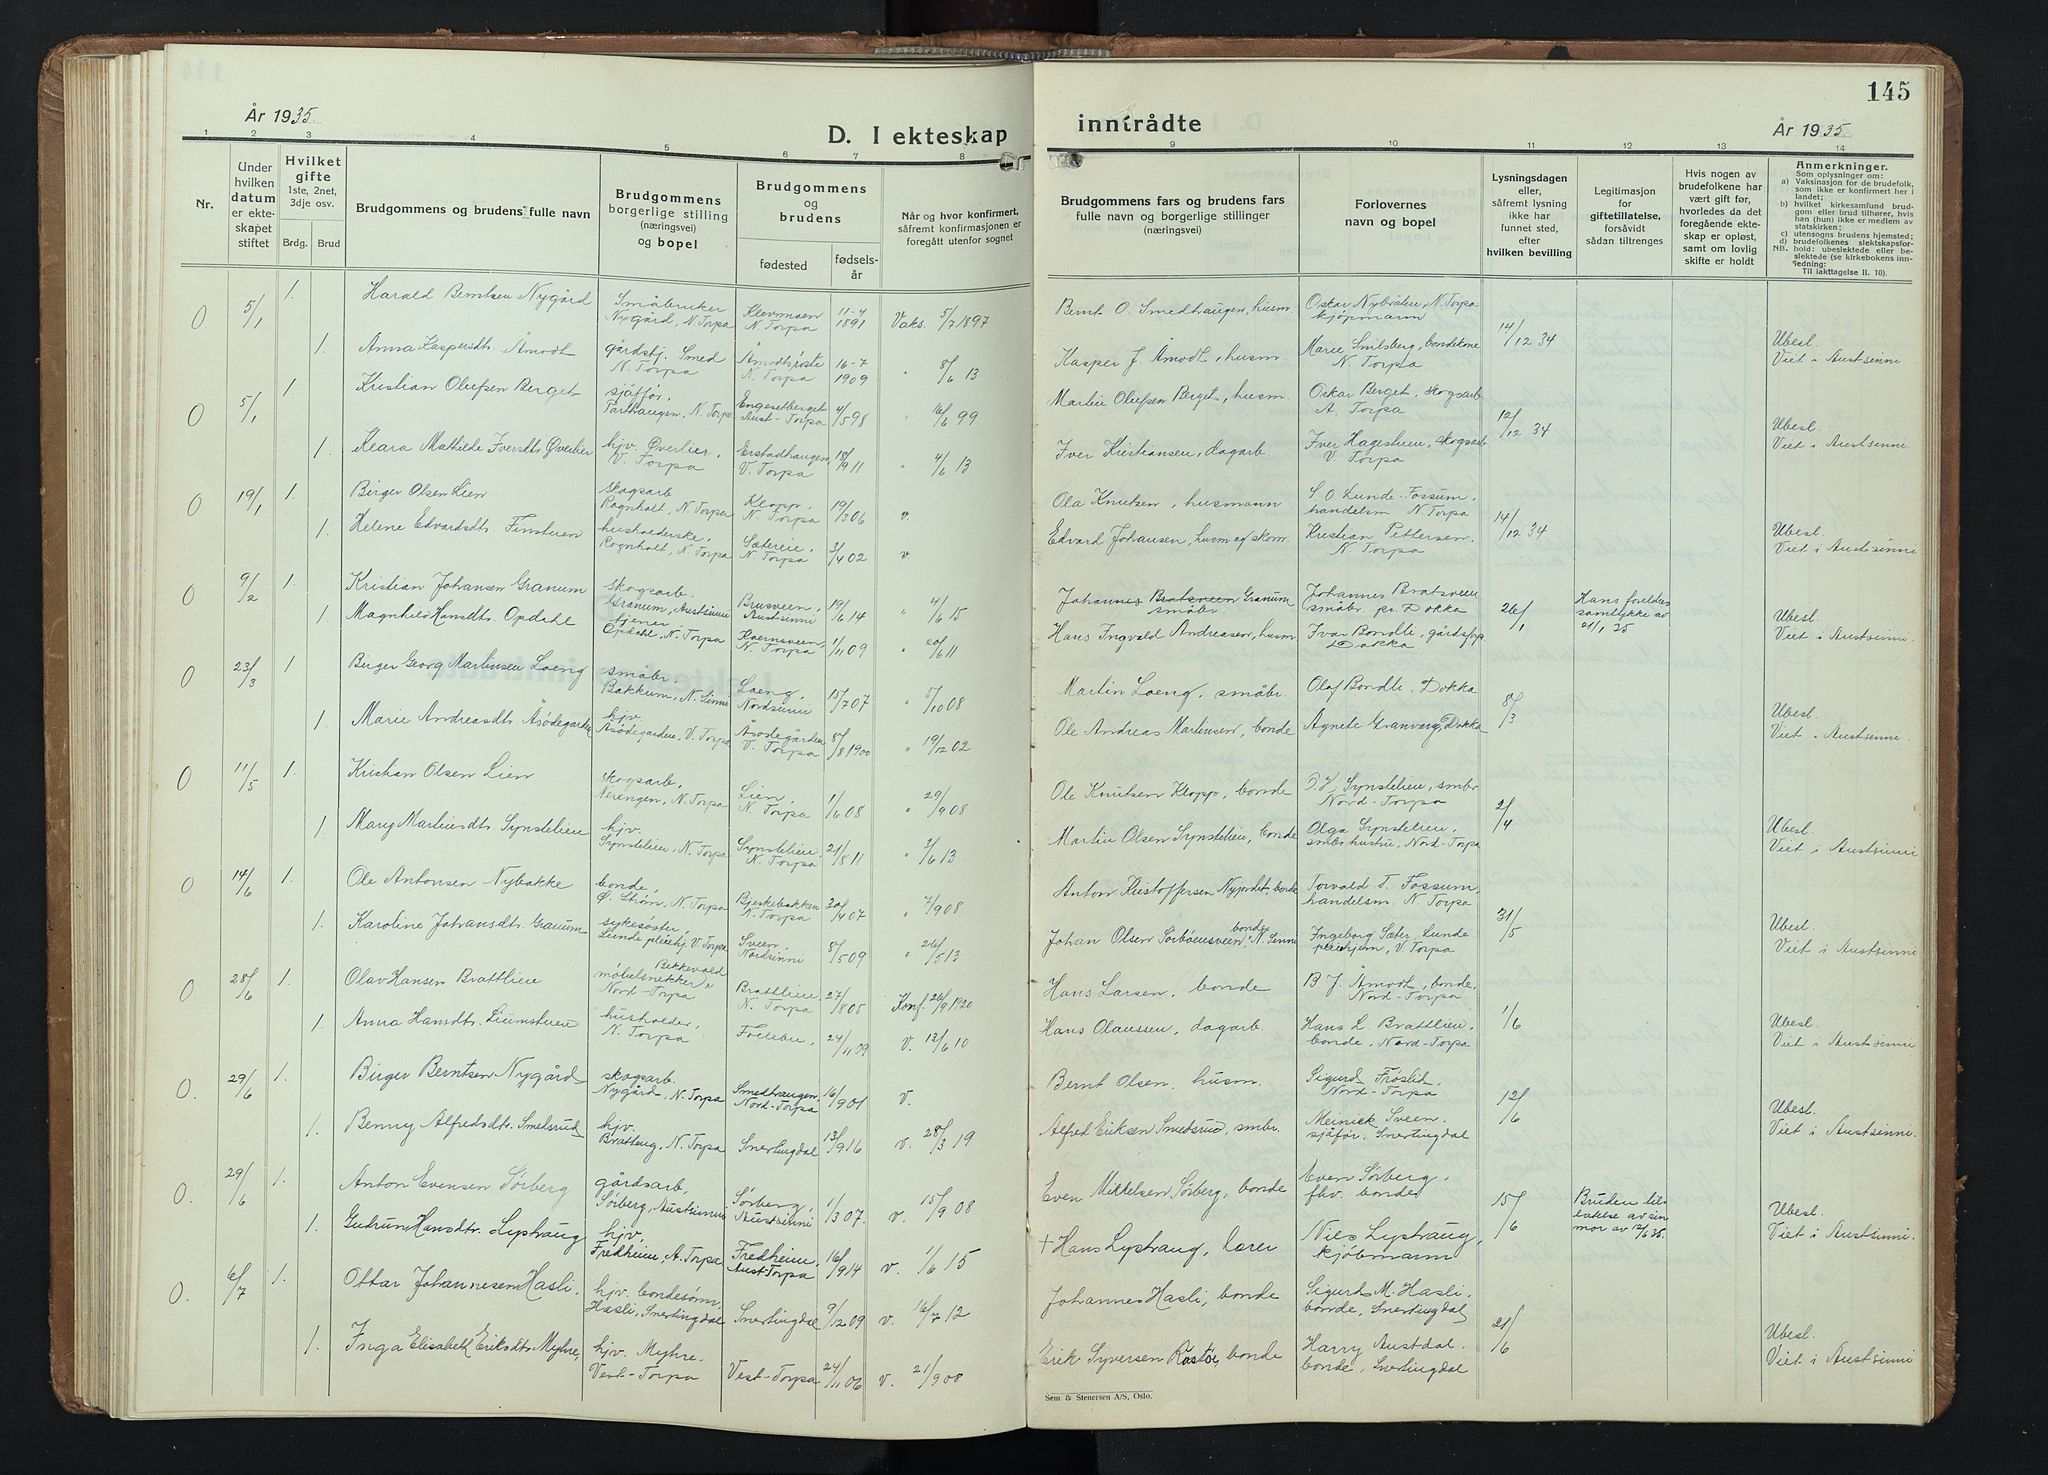 145
År 1935.
D. I ekteskap inntrådte
År 1935
1 2 3 4 5 6 7 8 9 10 11 12 13 14
Nr.
Under hvilken datum er ekteskapet stiftet
Hvilket gifte
1ste, 2net, 3dje osv.
Brdg. Brud
Brudgommens og brudens fulle navn
Brudgommens borgerlige stilling (næringsvei) og bopel
Brudgommens og brudens
fødested
fødselsår
Når og hvor konfirmert, såfremt konfirmasjonen er foregått utenfor sognet
Brudgommens fars og brudens fars fulle navn og borgerlige stillinger (næringsvei)
Forlovernes navn og bopel
Lysningsdagen eller, såfremt lysning ikke har funnet sted, efter hvilken bevilling
Legitimasjon for giftetillatelse, forsåvidt sådan tiltrenges
Hvis nogen av brudefolkene har vært gift før, hvorledes da det foregående ekteskap er opløst, samt om lovlig skifte er holdt
Anmerkninger.
Som oplysninger om:
a) Vaksinasjon for de brudefolk, som ikke er konfirmert her i landet;
b) hvilket kirkesamfund brudgom eller brud tilhører, hvis han (hun) ikke er medlem av statskirken;
c) utensogns brudens hjemsted;
d) brudefolkenes slektskapsforhold: ubeslektede eller beslektede (se kirkebokens innledning:
NB.
Til iakttagelse II. 10).
0 5/1 1. Harald Berntsen Nygård Småbruker Nygård, N. Torpa Klevmoen N. Torpa 11-4 1891 Vaks. 5/7 1897 Bernt O. Smedhaugen, husm. Oskar Nybråten, N. Torpa kjøpmann
1. Anna Kaspersdtr. Åmodt gårdstj. Smed N. Torpa N. Torpa 16-7 1909 " 8/6 13 Kasper J. Åmodt, husm. Marie Smilsberg, bondekone N. Torpa 14/12 34 Ubesl. Viet i Austsinni.
0 5/1 1. Kristian Olufsen Berget sjåfør, N. Torpa Engesetberget Aust-Torpa 4/5 98 " 16/6 99 Martin Olufsen Berget, husm. Oskar Berget, skogsarb. A. Torpa
1. Klara Mathilde Iversdtr. Øverlier hjv. Øverlier, V. Torpa Erstadhaugen, V. Torpa 18/9 11 " 4/6 13 Iver Kristiansen, dagarb. Iver Hagestuen, skogsarb. V. Torpa 12/12 34 Ubesl. Viet i Austsinni
0 19/1 1. Birger Olsen Lien skogsarb. Rognholt, N. Torpa Klopp, N. Torpa 19/3 06 v. Ola Knutsen, husmann S. O. Lunde-Fossum, handelsm. N. Torpa
1. Helene Edvardsdtr. Finstuen husholderske, Rognholt, N. Torpa Sætereie, N. Torpa 3/4 02 v Edvard Johansen, husm og skom. Kristian Pettersen, N. Torpa 14/12 34 Ubesl. Viet i Austsinni
0 9/2 1. Kristian Johansen Granum skogsarb. Granum, Austsinni Brusveen, Austsinni 19/6 14 " 4/6 15 Johannes Bratsveen Granum småbr. Johannes Bratsveen småbr. pr. Dokka Hans foreldres samtykke av 21/1 35
1. Magnhild Hansdtr. Opdahl tjener Opdahl, N. Torpa Kvernsveen, N. Torpa 1/11 09 " 20/6 11 Hans Ingvald Andreasen, husm Ivar Bondli, Dokka 26/1 Ubesl. Viet i Austsinni.
0 23/3 1. Birger Georg Martinsen Loeng småbr. Bakkum, N. Sinni Loeng, Nordsinni 15/7 07 " 5/10 08 Martin Loeng, småbr. Olaf Bondli, Dokka
1. Marie Andreasdtr. Åsödegården hjv. Åsödegården, V. Torpa Åsödegården V. Torpa 8/8 1900 " 19/12 02 Ole Andreas Martinsen, bonde Agnete Granvang, Dokka 8/3 Ubesl. Viet i Austsinni.
0 11/5 1. Kristian Olsen Lien skogsarb, Nerengen, N. Torpa Lien, N. Torpa 1/6 08 " 29/9 08 Ole Knutsen Klopp, bonde Synstelien, smbr. Nord-Torpa
1. Mary Martinsdtr. Synstelien hjv. Synstelien, N. Torpa Synstelien, N. Torpa 21/8 11 " 2/6 13 Martin Olsen Synstelien, bonde Olga Synstelien, smbr. hustru, Nord-Torpa 2/4 Ubesl. Viet i Austsinni
0 14/6 1. Ole Antonsen Nybakke bonde, Ø. Strøm, N. Torpa Bjerkebakken N. Torpa 30/4 07 " 7/9 08 Anton Kristoffersen Nyjordet, bonde Torvald T. Fossum, handelsm. N Torpa
1. Karoline Johansdtr. Granum sykesøster, Lunde pleiehj. V. Torpa Sveen, Nordsinni 8/5 09 " 26/5 13 Johan Olsen Sorböensveen, bonde, N. Sinni Ingeborg Sæter, Lunde pleiehjem, V. Torpa 31/5 Ubesl. Viet i Austsinni
0 28/6 1. Olav Hansen Brattlien Bekkevold møbelsnekker, Nord-Torpa Brattlien, N. Torpa 27/8 05 Konf. 26/9 1920 Hans Larsen, bonde B. J. Åmodt, bonde, Nord-Torpa
1. Anna Hansdtr. Liumstuen husholder, N. Torpa Follebu, 24/11 09 v. 12/6 10 Hans Olaussen, dagarb. Hans L. Brattlien, bonde, Nord-Torpa 1/6 Ubesl. Viet i Austsinni
0. 29/6 1. Birger Berntsen Nygård skogsarb. Nygård, N. Torpa Smedhaugen, Nord-Torpa 16/9 01 v. Bernt Olsen, husm. Sigurd Frøslid, Nord-Torpa
1. Benny Alfredsdtr. Smedsrud hjv. Brattaug, N. Torpa Snertingdal 13/9 16 v. 28/3 19 Alfred Eriksen Smedsrud, smbr. Meinick Sveen, sjåfør, Snertingdal 12/6 Ubesl. Viet i Austsinni.
0. 29/6 1. Anton Evensen Sörberg gårdsarb, Sörberg, Austsinni Sörberg, Austsinni 1/3 07. v. 15/9 08 Even Mikkelsen Sörberg, bonde Even Sörberg, fhv. bonde Bruden tillatelse av sin mor av 12/6 35.
1. Gudrun Hansdtr. Lyshaug hjv, Fredheim, A. Torpa Fredheim, Aust Torpa 16/9 14 v. 1/6 15 + Hans Lyshaug, lærer Niels Lyshaug, kjöbmann 15/6 Ubesl. Viet i Austsinni.
0. 6/7 1. Ottar Johannesen Hasli. hjv. bondesønn, Hasli, Snertingdal Snertingdal 9/12 09 v. 16/7 12 Johannes Hasli, bonde Sigurd M. Hasli, bonde, Snertingdal
1. Inga Elisabeth Eriksdtr. Myhre, hjv. Myhre. Vest-Torpa Vest-Torpa 24/11 06 v. 21/9 08 Erik Syversen Røstøe, bonde Harry Austdal, bonde, Snertingdal 21/6 Ubesl. Viet i Austsinni
Sem & Stenersen A/S, Oslo.